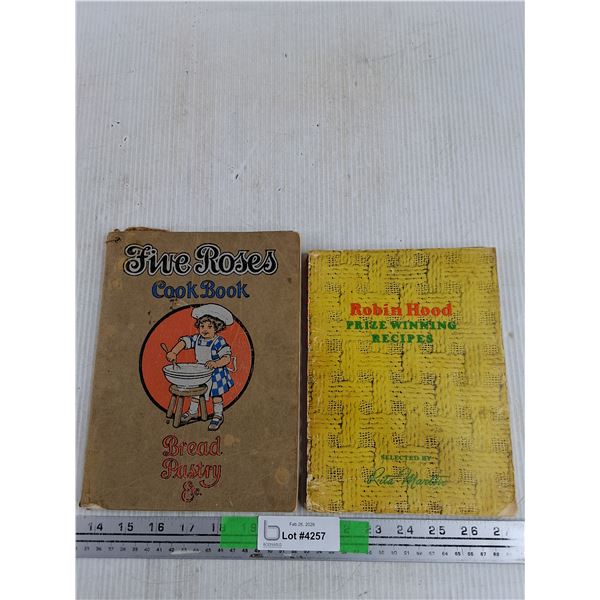 Five Roses
Cook Book
Bread
Pastry
&c.
Robin Hood
PRIZE WINNING
RECIPES
SELECTED BY
Rita Martin
14 15 16 17 18 19 23 24 25 26 27
Feb 26, 2026
Lot #4257